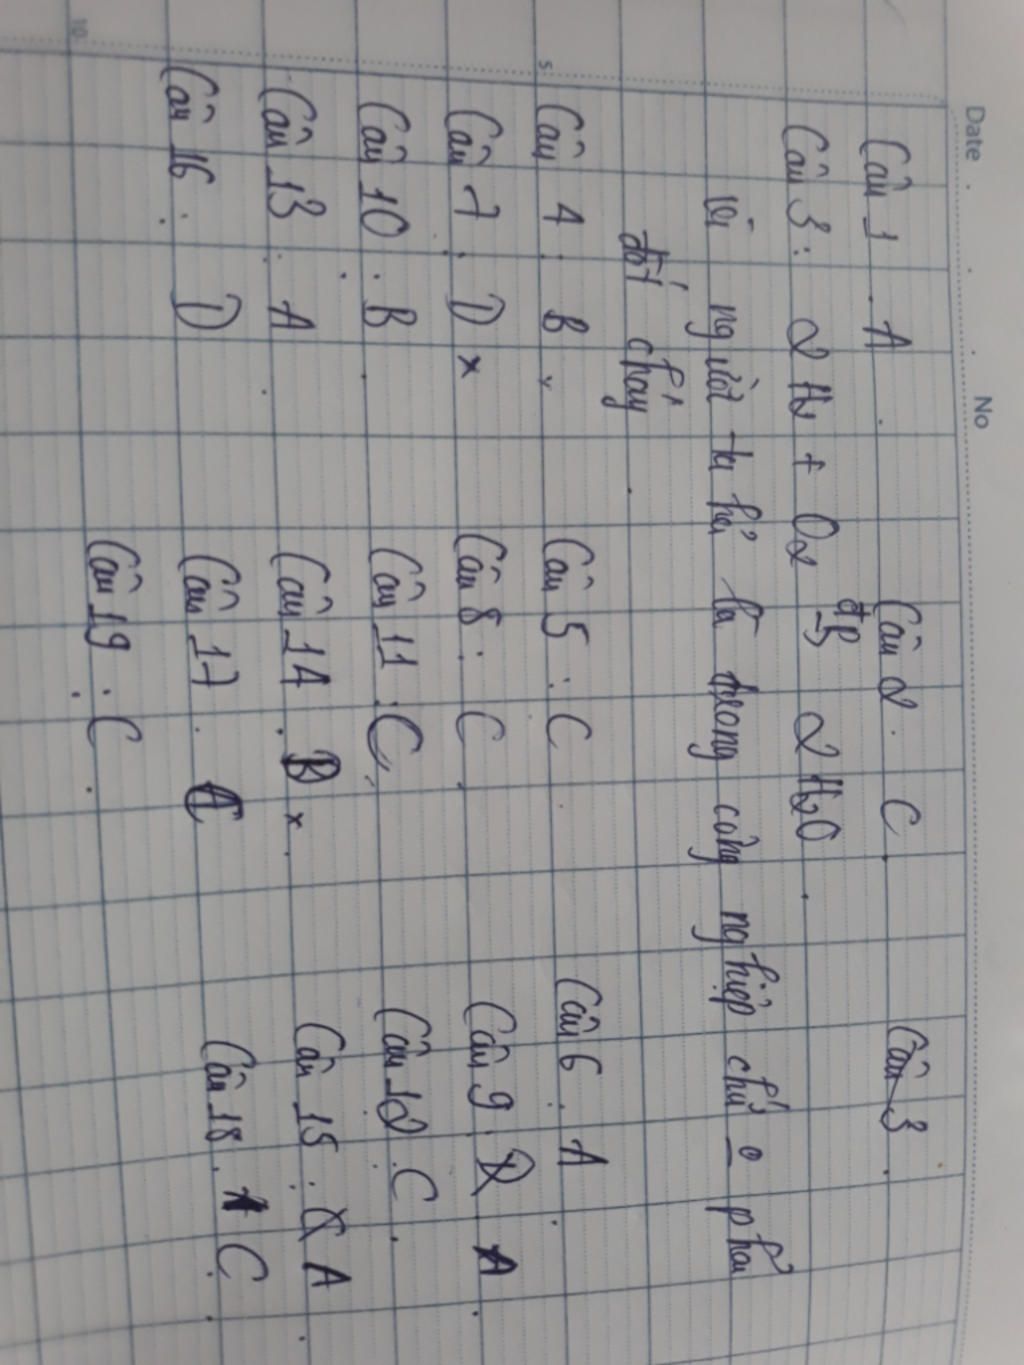 Date No
Câu 1 . A Câu 2 . C Câu 3
Câu 3 : 2 H2 + O2 đp → 2 H2O
Vì người ta hỏi là trong công nghiệp chứ o phải
đốt cháy
5 Câu 4 : B Câu 5 : C Câu 6 . A
Câu 7 . D x Câu 8 : C Câu 9 . A
Câu 10 . B Câu 11 : C Câu 12 . C
Câu 13 . A Câu 14 . B x Câu 15 : A
Câu 16 . D Câu 17 . C Câu 18 . C
10 Câu 19 . C